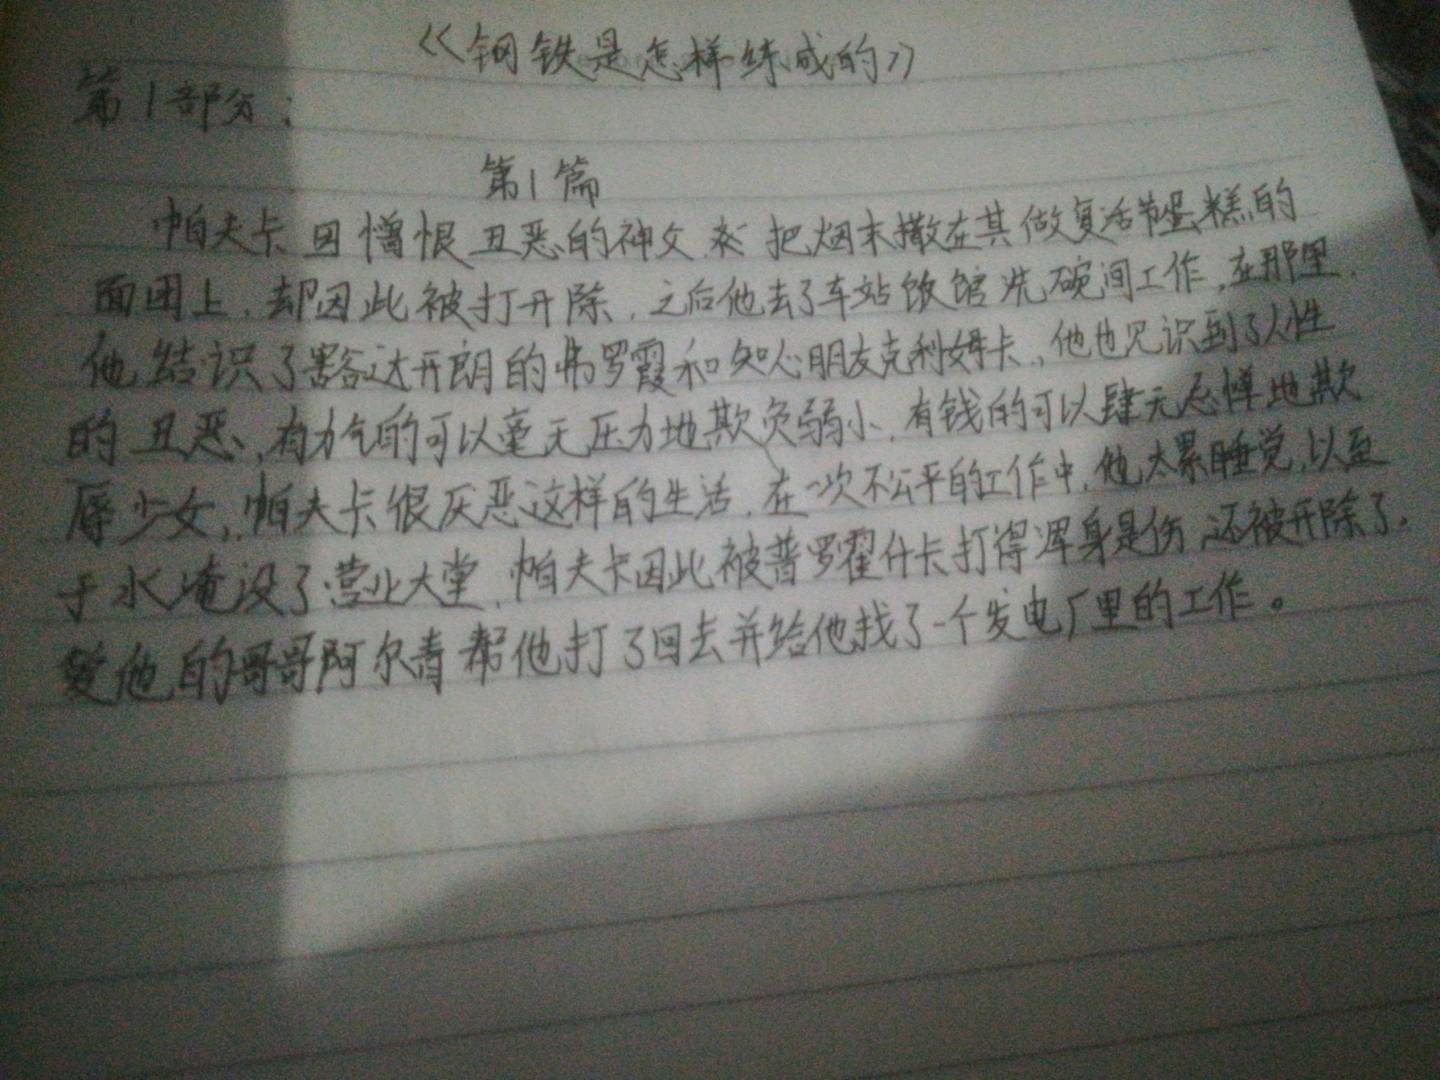 《钢铁是怎样练成的》
第1部分:
第1篇
帕夫卡因憎恨丑恶的神父 把烟末撒在其做复活节蛋糕的
面团上,却因此被打开除,之后他去了车站饭馆洗碗间工作,在那里,
他结识了豁达开朗的弗罗霞和知心朋友克利姆卡,他也见识到了人性
的丑恶,有力气的可以毫无压力地欺负弱小,有钱的可以肆无忌惮地欺
辱少女,帕夫卡很厌恶这样的生活,在一次不公平的工作中,他太累睡觉,以至
于水淹没了营业大堂,帕夫卡因此被普罗霍什卡打得浑身是伤,还被开除了,
他的哥哥阿尔青帮他打了回去并给他找了一个发电厂里的工作。